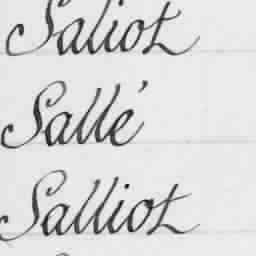 Saliot
Sallé
Salliot